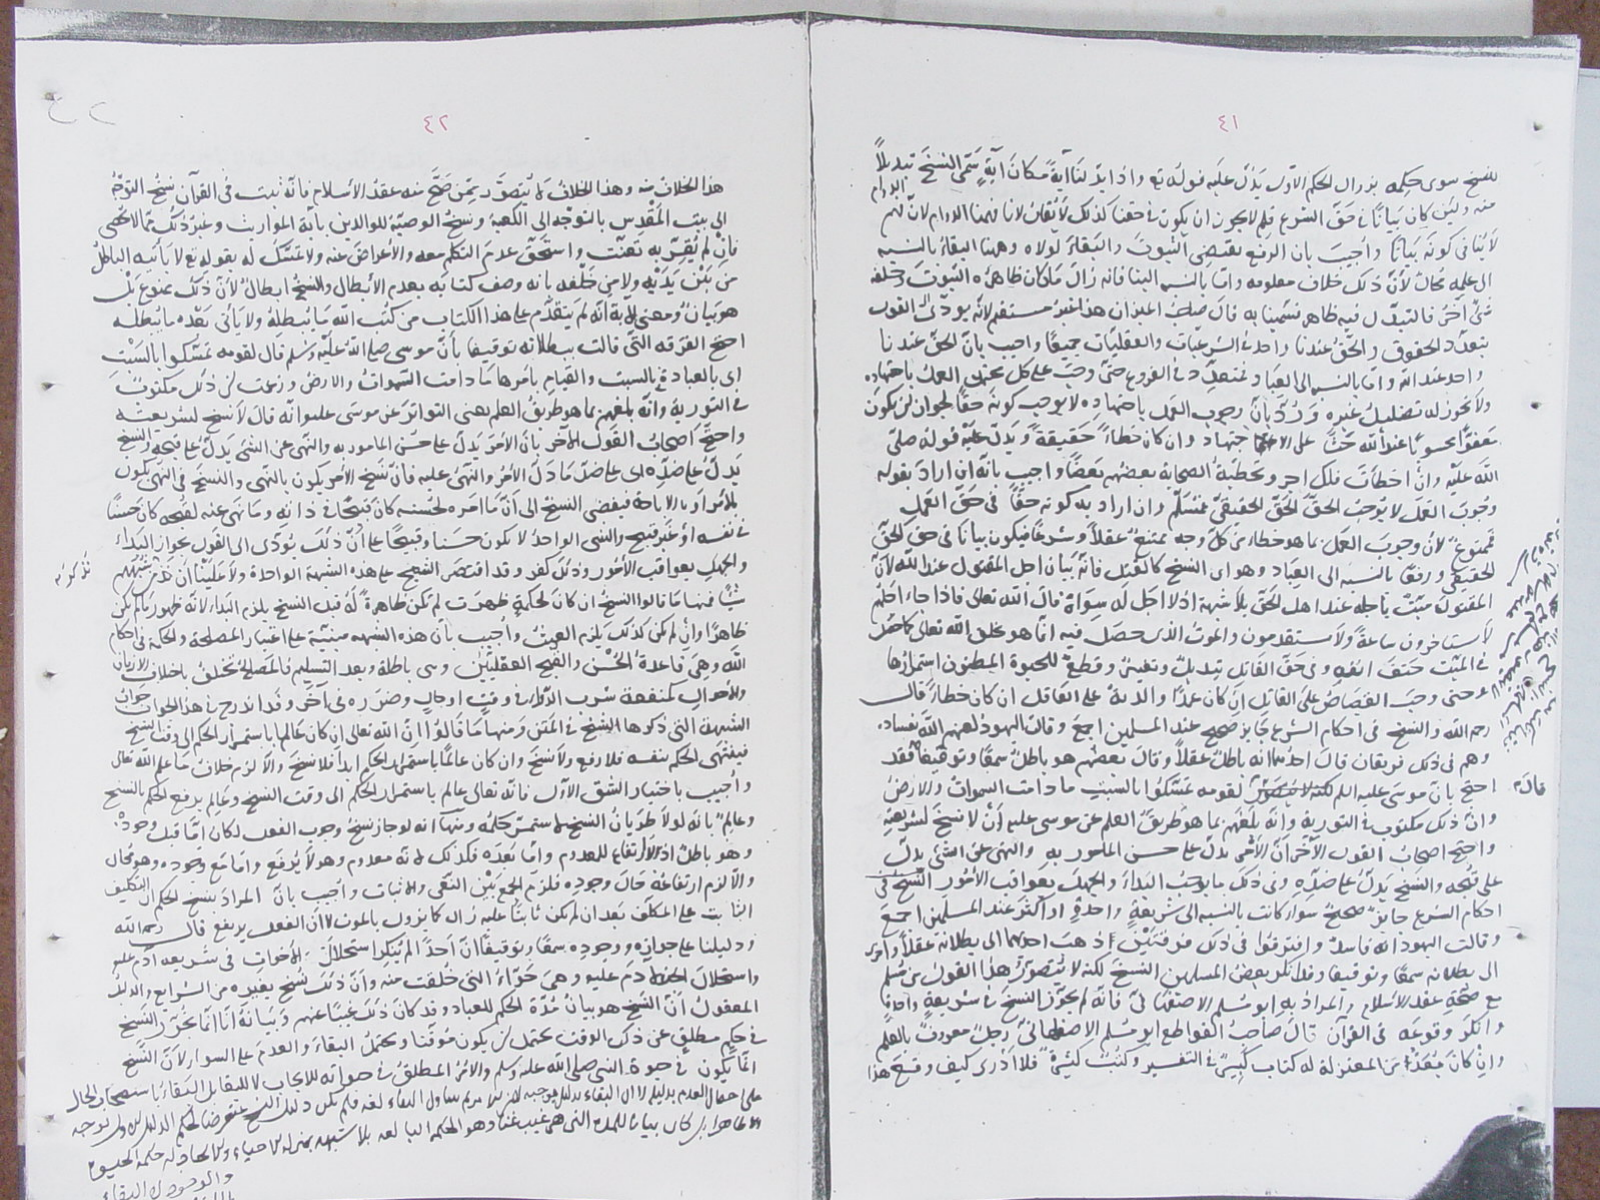 ٤١
للنسخ سوى حكمه بزوال الحكم الأول يدل عليه قوله تع واذا بدلنا آية مكان آية سمى النسخ تبديلاً
منه ولئن كان بيانا في حق الشرع فلم لا يجوز ان يكون في حقنا كذلك لا يقال لانا فهمنا الدوام لان
لاينافى كونه بيانا واجيب بان الرفع يقتضى الثبوت والبقاء لولاه وههنا البقاء بالنسبه
الى علمه محال لأن ذلك خلاف معلومه واما بالنسبه الينا فانه زال ما كان ظاهره الثبوت وخلفه
شئ آخر فالتبدل فيه ظاهر فسميناه به قال صاحب الميزان هذا غير مستقيم لأنه يؤدى الى القول
بتعدد الحقوق والحق عندنا واحد في الشرعيات والعقليات جميعا واجيب بان الحق عندنا
واحد عند الله واما بالنسبه الى العباد فمتعدد في الفروع حتى وجب على كل مجتهد العمل باجتهاده
ولا يجوز له تضليل غيره ورد بان وجوب العمل باجتهاده لا يوجب كونه حقا لجواز ان يكون
الله عليه وان اخطأت فلك اجر وتخطئة الصحابة بعضهم بعضا واجيب بانه ان اراد بقوله
وجوب العمل لا يوجب الحق الحق الحقيقى فمسلم وان اراد به كونه حقا في حق العمل
فممنوع لأن وجوب العمل بما هو خطاء من كل وجه ممتنع عقلاً وشرعا فيكون بيانا في حق الحق
الحقيقي ورفعا بالنسبه الى العباد وهو اى النسخ كالقتل فانه بيان اجل المقتول عند الله لأن
المقتول ميت باجله عند اهل الحق بلا شبهة اذ لا اجل له سواه قال الله تعالى فاذا جاء اجلهم
لا يستأخرون ساعة ولا يستقدمون والموت الذى حصل فيه انما هو بخلق الله تعالى كما حصل
في الميت حتف انفه وفى حق القاتل تبديل وتغيير وقطع للحيوة المظنون استمرارها
حتى وجب القصاص على القاتل ان كان عمدا والدية على العاقل ان كان خطاء قال
رحمه الله والنسخ في احكام الشرع جايز صحيح عند المسلمين اجمع وقالت اليهود لعنهم الله بفساده
وهم فى ذلك فريقان قال احدهما انه باطل عقلاً وقال بعضهم هو باطل سمعا وتوقيفا فقد
احتج بان موسى عليه السلم قال لقومه تمسكوا بالسبت ما دامت السموات والارض
وان ذلك مكتوب في التورية وانه بلغهم بما هو طريق العلم عن موسى عليه أن لا نسخ لشريعته
واحتج اصحاب القول الآخر أن الأمر يدل على حسن المأمور به والنهى عن الشئ يدل
على قبحه والنسخ يدل على ضده وفى ذلك ما يوجب البداء والجهل بعواقب الأمور النسخ في
احكام الشرع جايز صحيح سواء كانت بالنسبه الى شريعة واحدة او اكثر عند المسلمين اجمع
وقالت اليهود انه فاسد وافترقوا فى ذلك فرقتين اذ ذهبت احديهما الى بطلانه عقلاً واخرى
الى بطلانه سمعا وتوقيفا وقد انكر بعض المسلمين النسخ لكنه لا يتصور هذا القول من مسلم
مع صحة عقد الاسلام والمراد به ابو مسلم الاصفهانى فانه لم يجوز النسخ في شريعة واحدة
وانكر وقوعه في القرآن قال صاحب القواطع ابو مسلم الاصفهانى رجل معروف بالعلم
وان كان يعد من المعتزلة له كتاب كبير في التفسير وكتب كثيرة فلا ادرى كيف وقع هذا
قال
٤٢
هذا الخلاف منه وهذا الخلاف لا يتصور ممن صح منه عقد الأسلام فانه ثبت في القرآن نسخ التوجه
الى بيت المقدس بالتوجه الى الكعبة ونسخ الوصية للوالدين بآية المواريث وغير ذلك مما لا يحصى
فان لم يقر به تعنت واستحق عدم التكلم معه والأعراض عنه ولا تمسك له بقوله تع لا يأتيه الباطل
من بين يديه ولا من خلفه بانه وصف كتابه بعدم الأبطال والنسخ ابطال لأن ذلك ممنوع بل
هو بيان ومعنى الآية انه لم يتقدم على هذا الكتاب من كتب الله ما يبطله ولا يأتى بعده ما يبطله
احتج الفرقه التى قالت ببطلانه توقيفا بأن موسى صلى الله عليه وسلم قال لقومه تمسكوا بالسبت
اى بالعبادة في السبت والقيام بأمرها ما دامت السموات والارض وزعمت ان ذلك مكتوب
في التورية وانه بلغهم بما هو طريق العلم يعنى التواتر عن موسى عليه انه قال لا نسخ لشريعته
واحتج اصحاب القول الآخر بان الأمر يدل على حسن المأمور به والنهى عن الشئ يدل على قبحه والنسخ
يدل على ضده اى على ضد ما دل الأمر والنهى عليه فان نسخ الأمر يكون بالنهى والنسخ فى النهى يكون
بالأمر او بالاباحة فيفضى النسخ الى ان ما امر به لحسنه كان قبيحا في ذاته وما نهى عنه لقبحه كان حسنا
في نفسه او غير قبيح والشى الواحد لا يكون حسنا وقبيحا على أن ذلك يؤدى الى القول بجواز البداء
والجهل بعواقب الأمور وذلك كفر وقد اقتصر الشيخ على هذه الشبهة الواحدة ولا علينا أن
فمنها ما قالوا النسخ ان كان لحكمة ظهرت لم تكن ظاهرة له قبل النسخ يلزم البداء لانه ظهور ما لم يكن
ظاهرا وان لم يكن كذلك يلزم العبث واجيب بان هذه الشبهه مبنية على اعتبار المصلحة والحكمة في احكام
الله وهى قاعدة الحسن والقبح العقليين وهى باطلة وبعد التسليم فالمصالح تختلف باختلاف الازمان
والأحوال كمنفعة شرب الدواء في وقت او حال وضرره فى آخر وقد اندرج في هذا الجواب جواب
الشبهة التى ذكرها الشيخ في المتن ومنها ما قالوا ان الله تعالى ان كان عالما باستمرار الحكم الى وقت النسخ
فينتهى الحكم بنفسه فلا رفع ولا نسخ وان كان عالما باستمرار الحكم ابدا فلا نسخ والا لزم خلاف ما علم الله تعالى
واجيب باختيار الشق الأول فانه تعالى عالم باستمرار الحكم الى وقت النسخ وعالم برفع الحكم بالنسخ
وعالم بانه لولا طريان النسخ لاستمر حكمه ومنها انه لو جاز نسخ وجوب الفعل لكان اما قبل وجوده
وهو باطل اذ لا ارتفاع للمعدوم واما بعده فكذلك لانه معدوم وهو لا يرفع واما مع وجوده وهو محال
والا لزم ارتفاعه حال وجوده فلزم الجمع بين النفى والاثبات واجيب بان المراد بنسخ الحكم ان التكليف
الثابت على المكلف بعد ان لم يكن ثابتا عليه زال كما يزول بالموت لا ان الفعل يرتفع قال رحمه الله
ودليلنا على جوازه ووجوده سمعا وتوقيفا ان احدا لم ينكر استحلال الأخوات فى شريعة آدم عليه
واستحلال آدم عليه وهى حواء التى خلقت منه وان ذلك نسخ بغيره من الشرايع والدليل
المعقول ان النسخ هو بيان مدة الحكم للعباد وقد كان ذلك غيبا عنهم وبيانه انا انما نجوز النسخ
في حكم مطلق عن ذكر الوقت يحتمل ان يكون موقتا ويحتمل البقاء والعدم على السواء لأن النسخ
انما يكون في حيوة النبى صلى الله عليه وسلم والأمر المطلق في حيواته للايجاب لا للبقاء بل البقاء باستصحاب الحال
على احتمال العدم بدليله لا ان البقاء بدليل يوجبه لان الامر لم يتناول البقاء لغة فلم يكن دليل النسخ متعرضا لحكم الدليل الاول بوجه
الا ظاهرا بل كان بيانا للمدة التى هى غيب عنا وهو الحكمة البالغه بلا شبهه بمنزله الاحياء والايجاد